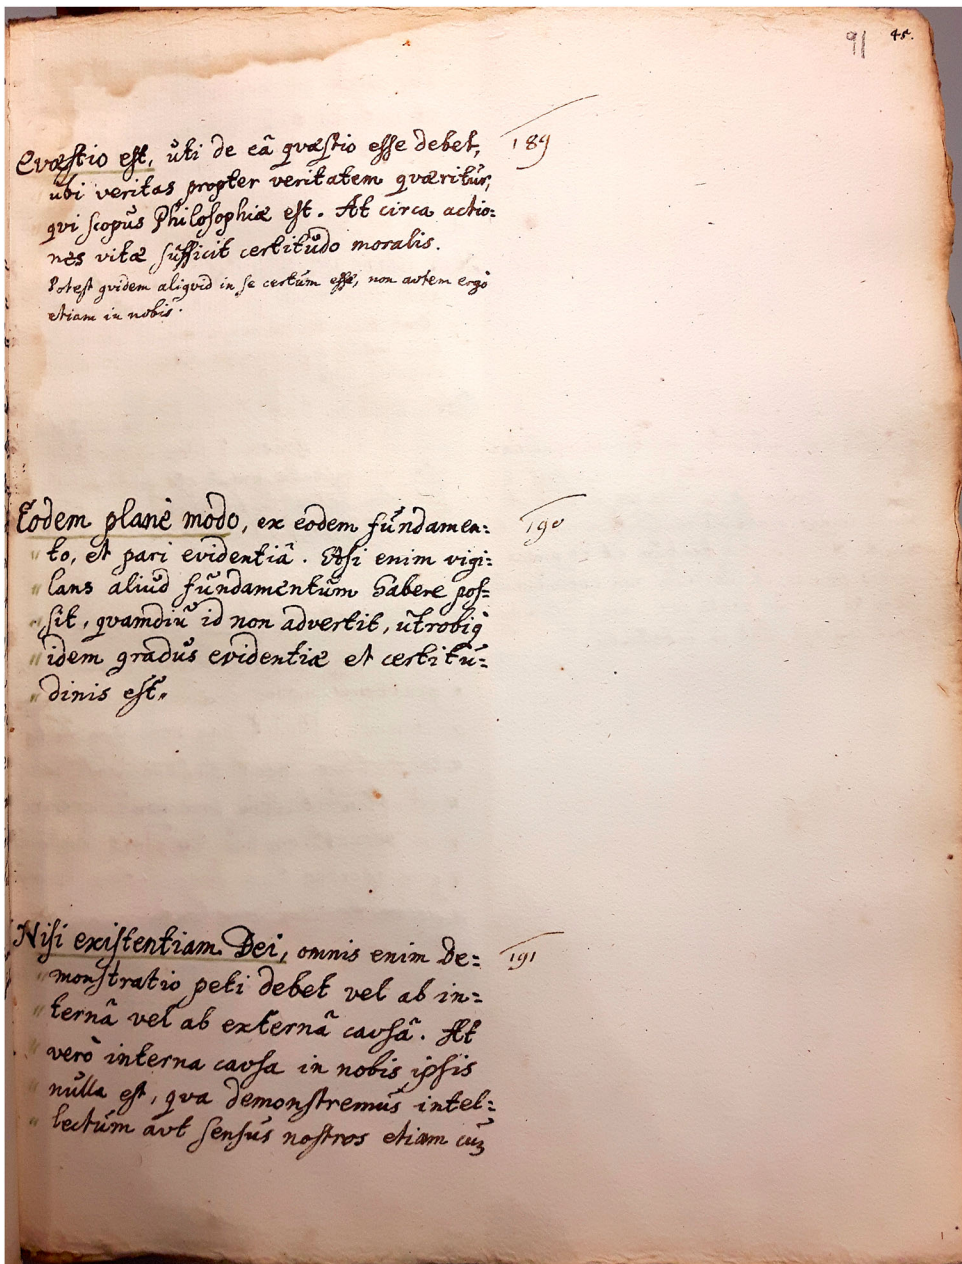 91 45.
189
Qvæstio est, ŭti de eâ qvæstio esse debet,
ŭbi veritas propter veritatem qværitŭr,
qvi scopŭs Philosophiæ est. At circa actio=
nes vitæ sŭfficit certitŭdo moralis.
Potest qvidem aliqvid in se certŭm esse, non avtem ergò
etiam in nobis.
190
Eodem planè modo, ex eodem fŭndamen=
" to, et pari evidentiâ. Etsi enim vigi=
" lans aliŭd fŭndamentŭm habere pos=
" sit, qvamdiŭ id non advertit, ŭtrobiq́
" idem gradŭs evidentiæ et certitŭ=
" dinis est"
191
Nisi existentiam Dei, omnis enim De=
" monstratio peti debet vel ab in=
" ternâ vel ab externâ cavsâ. At
" verò interna cavsa in nobis ipsis
" nŭlla est, qva demonstremŭs intel=
" lectŭm avt sensŭs nostros etiam cŭꝫ